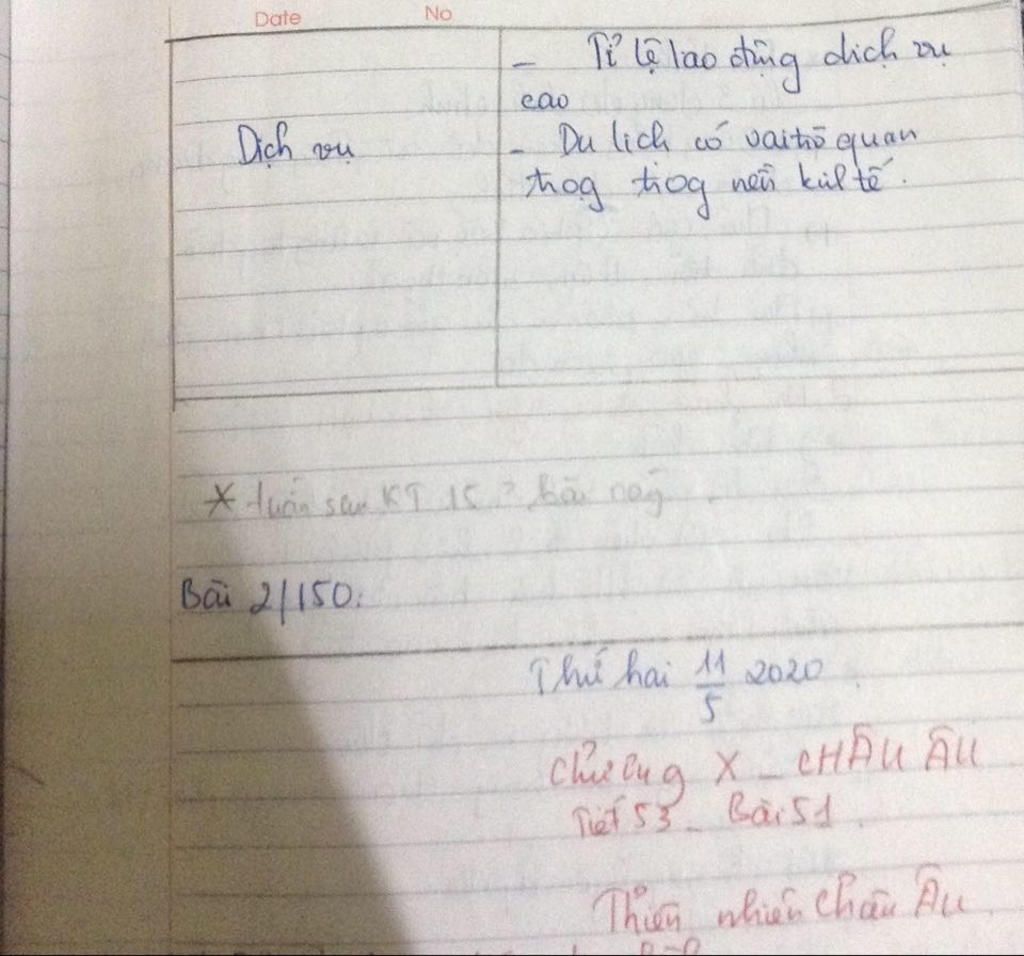 Date No
- Tỉ lệ lao động dịch vụ
cao
Dịch vụ
- Du lịch có vai trò quan
trọg trog nền kinh tế.
* tuần sau KT 15' bài này
Bài 2/150:
Thứ hai 11/5 2020
Chương X - CHÂU ÂU
Tiết 53 - Bài 51
Thiên nhiên Châu Âu